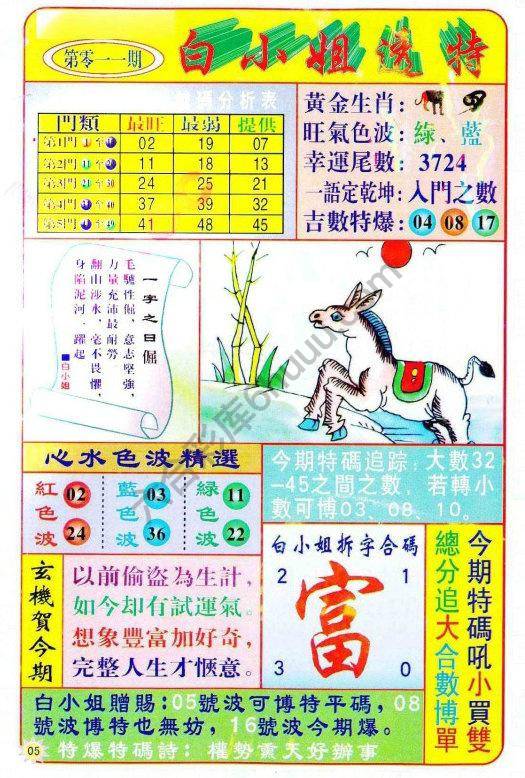 第零一一期
白小姐透特
號碼分析表
門類 最旺 最弱 提供
第1門 1 至 9 02 19 07
第2門 11 至 20 11 18 13
第3門 21 至 30 24 25 21
37 39 32
至 49 41 48 45
黃金生肖：
旺氣色波：綠、藍
幸運尾數：3724
一語定乾坤：入門之數
吉數特爆：04 08 17
一字之曰倔
毛驢性倔，意志堅強，
力量充沛最耐勞
翻山涉水，毫不畏懼，
身陷泥河一躍起
■白小姐
心水色波精選
紅色波 02 24
藍色波 03 36
綠色波 11 22
今期特碼追踪：大數32
-45之間之數，若轉小
數可博03、08、10。
玄機賀今期
以前偷盜為生計，
如今却有試運氣。
想象豐富加好奇，
完整人生才愜意。
白小姐拆字合碼
2 1
富
3 0
今期特碼吼小買雙
總分追大合數博單
白小姐贈賜：05號波可博特平碼，08
號波博特也無妨，16號波今期爆。
特爆特碼詩：權勢熏天好辦事
05